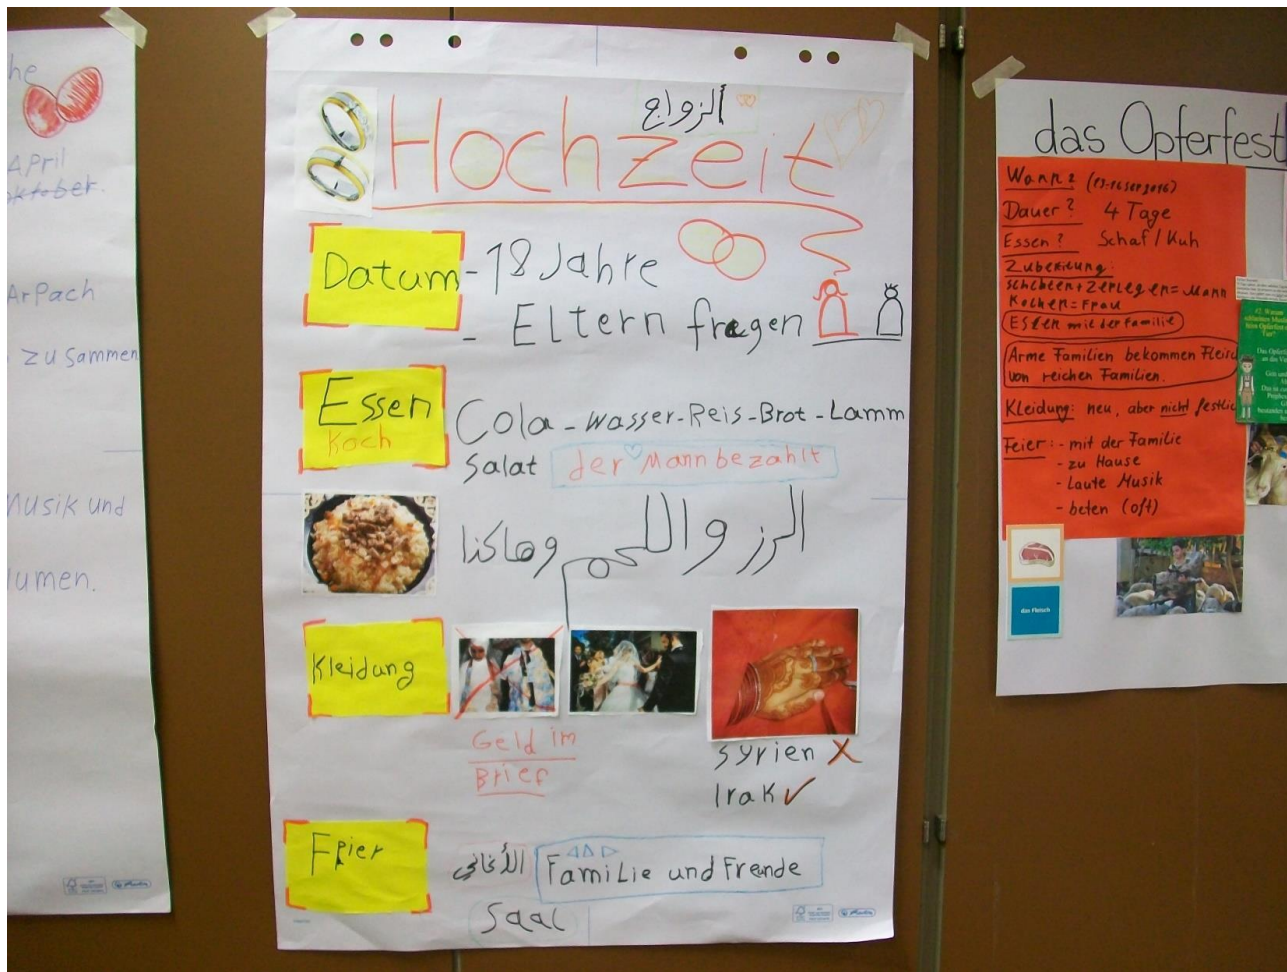 he
April
oktober.
Arpach
zusammen
Musik und
lumen.
الزواج
Hochzeit
Datum
- 18 Jahre
- Eltern fragen
Essen
Koch
Cola - Wasser - Reis - Brot - Lamm
Salat
der Mann bezahlt
الرز واللحم وهاكذا
Kleidung
Geld im
Brief
Syrien X
Irak ✓
Feier
الأغاني
Familie und Freunde
Saal
das Opferfest
Wann?
Dauer? 4 Tage
Essen? Schaf / Kuh
Zubereitung:
Kochen = Frau
Essen mit der Familie
Arme Familien bekommen Fleisc
von reichen Familien.
Kleidung: neu, aber nicht festlic
Feier: - mit der Familie
- zu Hause
- Laute Musik
- beten (oft)
das Fleisch